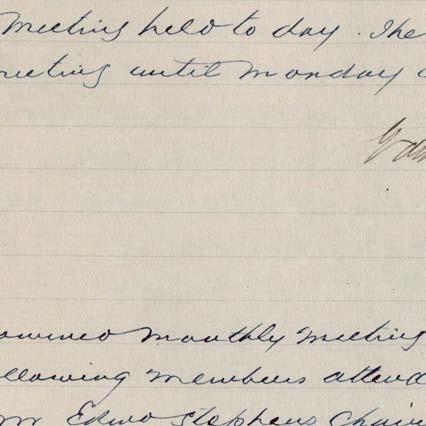 Meeting held to day. The
meeting until Monday
monthly Meeting
following members attend
Mr Edwd Stephens Chair